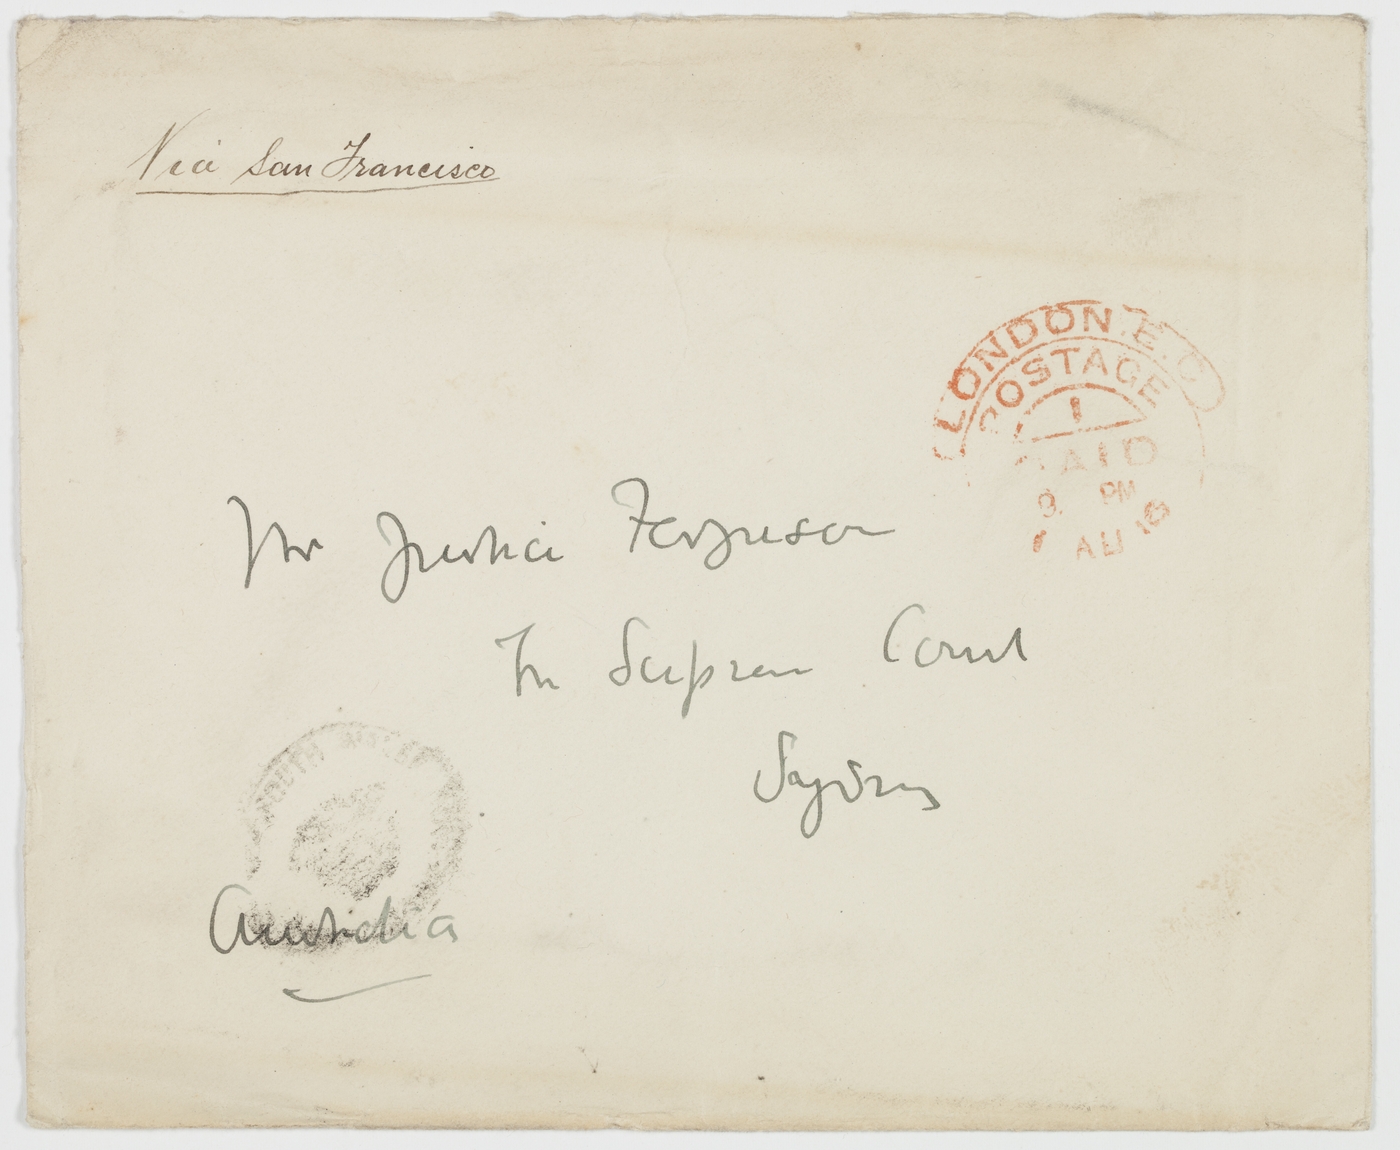 Via San Francisco
LONDON. E. C
POSTAGE
1
PAID
9. PM
AU 16
Mr Justice Ferguson
The Supreme Court
Sydney
SOUTH WALES
Australia